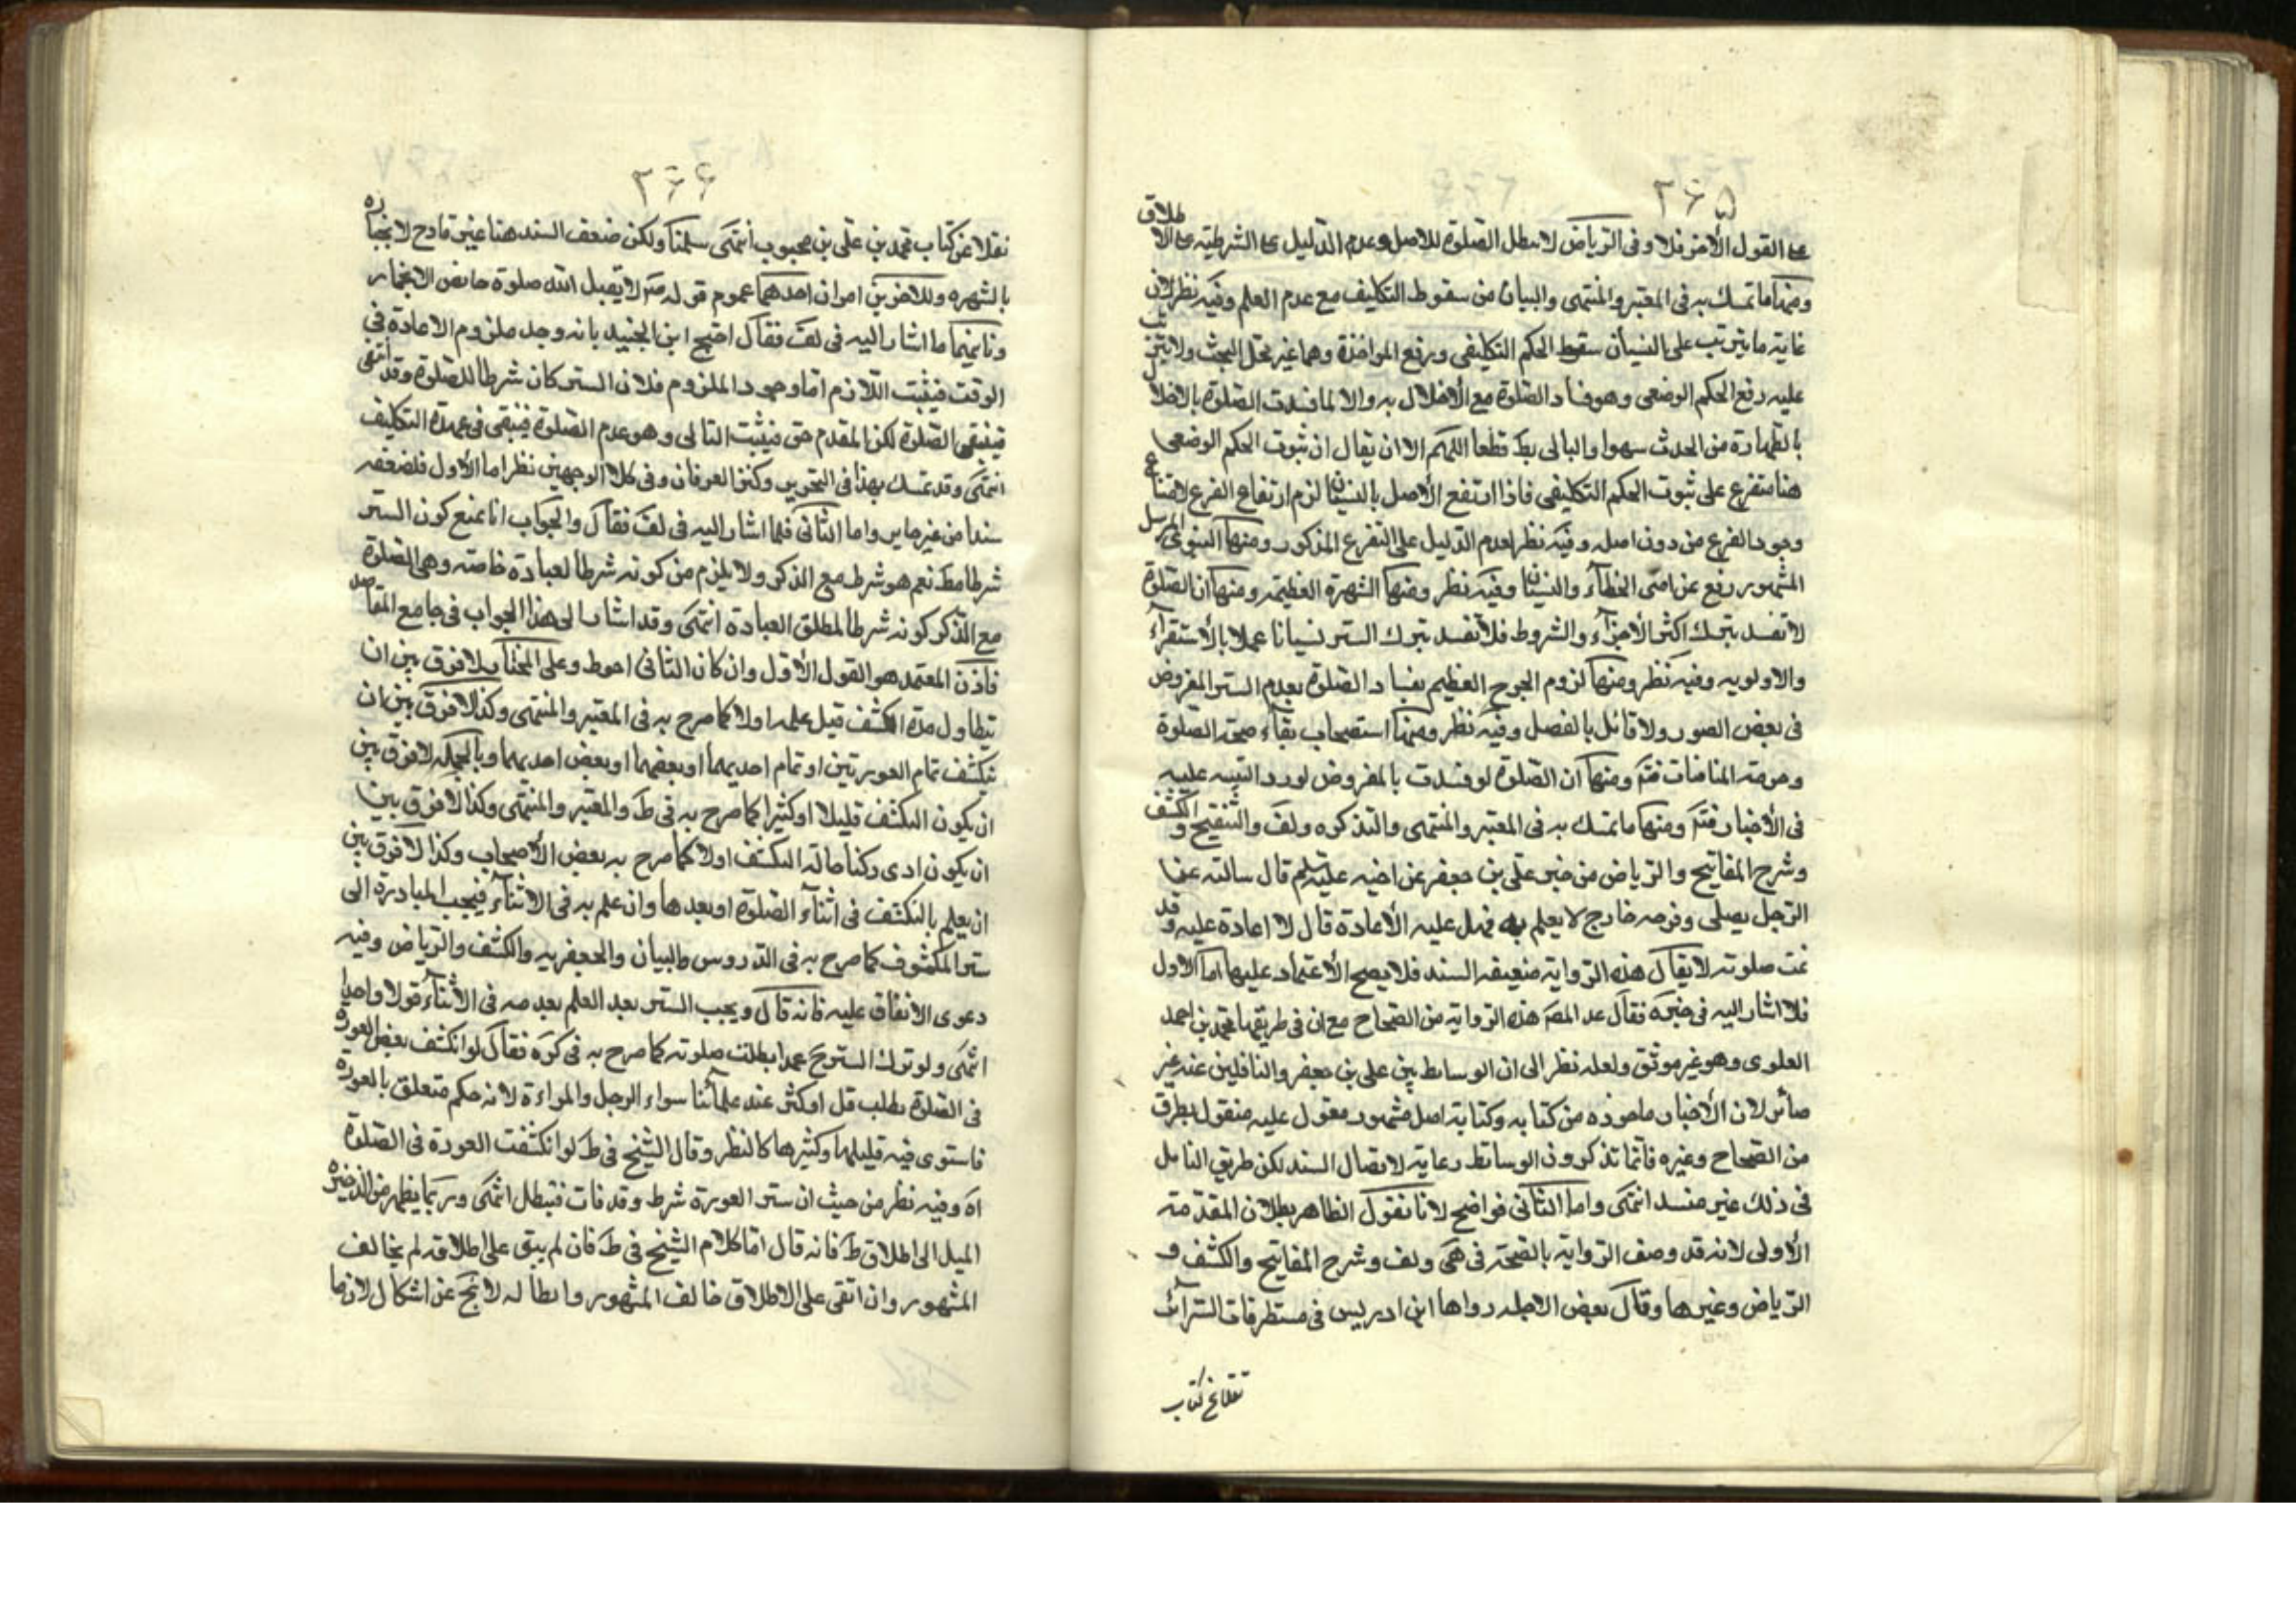 ۲۶۵
على القول الأخر فلا وفى الرياض لا تبطل الصلوة للاصل وعدم الدليل على الشرطية على الاطلاق
ومنها ما تمسك به فى المعتبر والمنتهى والبيان من سقوط التكليف مع عدم العلم وفيه نظر لان
غاية ما يترتب على النسيان سقوط الحكم التكليفى ورفع المواخذة وهما غير محل البحث ولا يترتب
عليه رفع الحكم الوضعى وهو فساد الصلوة مع الأخلال به والا لما فسدت الصلوة بالاخلال
بالطهارة من الحدث سهوا والتالى بط قطعا اللهم الا ان يقال ان ثبوت الحكم الوضعى
هنا متفرع على ثبوت الحكم التكليفى فاذا ارتفع الأصل بالنسيان لزم ارتفاع الفرع لامتناع
وجود الفرع من دون اصله وفيه نظر لعدم الدليل على التفرع المذكور ومنها النبوى المرسل
المشهور رفع عن امتى الخطأ والنسيان وفيه نظر ومنها الشهرة العظيمة ومنها ان الصلوة
لا تفسد بترك اكثر الأجزاء والشروط فلا تفسد بترك الستر نسيانا عملا بالأستقراء
والاولويه وفيه نظر ومنها لزوم الحرج العظيم بفساد الصلوة بعدم الستر المفروض
فى بعض الصور ولا قائل بالفصل وفيه نظر ومنها استصحاب بقاء صحة الصلوة
وحرمة المنافات فتم ومنها ان الصلوة لو فسدت بالمفروض لورد التنبيه عليه
فى الأخبار فتم ومنها ما تمسك به فى المعتبر والمنتهى والتذكره ولف والتنقيح والكشف
وشرح المفاتيح والرياض من خبر على بن جعفر عن اخيه عليه‌السلم قال سالته عن
الرجل يصلى وفرجه خارج لا يعلم به فهل عليه الأعادة قال لا اعادة عليه وقد
تمت صلوته لا يقال هذه الرواية ضعيفه السند فلا يصح الأعتماد عليها اما الاول
فلا اشار اليه فى خيره فقال عد المص هذه الرواية من الصحاح مع ان فى طريقها محمد بن احمد
العلوى وهو غير موثق ولعله نظر الى ان الوسائط بين على بن جعفر والناقلين عنه غير
ضائر لان الأخبار ماخوذه من كتابه وكتابة اصل مشهور معول عليه منقول بطرق
من الصحاح وغيره فانما تذكرون الوسائط رعاية لاتصال السند لكن طريق التامل
فى ذلك غير منسد انتهى واما الثانى فواضح لانا نقول الظاهر بطلان المقدمة
الأولى لانه قد وصف الرواية بالصحة فى هى ولف وشرح المفاتيح والكشف و
الرياض وغيرها وقال بعض الاجله رواها ابن ادريس فى مستطرفات السرائر
نقلا عن كتاب
۲۶۶
نقلا عن كتاب محمد بن على بن محبوب انتهى سلمنا ولكن ضعف السند هنا غير قادح لانجباره
بالشهره وللاخرين امران احدهما عموم قوله ص لا يقبل الله صلوة حائض الا بخمار
وثانيهما ما اشار اليه فى لف فقال احتج ابن الجنيد بانه وجد ملزوم الاعادة فى
الوقت فيثبت اللازم اما وجود الملزوم فلان الستر كان شرطا للصلوة وقد انتفى
فينتفى الصلوة لكن المقدم حق فيثبت التالى وهو عدم الصلوة فيبقى فى عهدة التكليف
انتهى وقد تمسك بهذا فى التحرير وكنز العرفان وفى كلا الوجهين نظر اما الأول فلضعفه
سندا من غير جابر واما الثانى فلما اشار اليه فى لف فقال والجواب انا نمنع كون الستر
شرطا مط نعم هو شرط مع الذكر ولا يلزم من كونه شرطا لعبادة خاصة وهى الصلوة
مع الذكر كونه شرطا لمطلق العبادة انتهى وقد اشار الى هذا الجواب فى جامع المقاصد
فاذن المعتمد هو القول الأول وان كان الثانى احوط وعلى المختار لا فرق بين ان
يتطاول مدة الكشف قبل علمه اولا كما صرح به فى المعتبر والمنتهى وكذا لا فرق بين ان
ينكشف تمام العورتين او تمام احديهما او بعضهما او بعض احديهما وبالجمله لا فرق بين
ان يكون التكشف قليلا او كثيرا كما صرح به فى ط والمعتبر والمنتهى وكذا لا فرق بين
ان يكون ادى ركنا حالة التكشف اولا كما صرح به بعض الأصحاب وكذا لا فرق بين
ان يعلم بالتكشف فى اثناء الصلوة او بعدها وان علم به فى الاثناء فيجب المبادرة الى
ستر المكشوف كما صرح به فى الدروس والبيان والجعفريه والكشف والرياض وفيه
دعوى الاتفاق عليه فانه قال ويجب الستر بعد العلم بعدمه فى الأثناء قولا واحدا
انتهى ولو ترك الستر ح عمدا بطلت صلوته كما صرح به فى كره فقال لو انكشف بعض العورة
فى الصلوة بطلت قل او كثر عند علمائنا سواء الرجل والمراءة لانه حكم متعلق بالعورة
فاستوى فيه قليلها وكثيرها كالنظر وقال الشيخ فى ط لو انكشفت العورة فى الصلوة
اه وفيه نظر من حيث ان ستر العورة شرط وقد فات فتبطل انتهى وربما يظهر من الذخيره
الميل الى اطلاق ط فانه قال اما كلام الشيخ فى ط فان لم يبق على اطلاقه لم يخالف
المشهور وان ابقى على الاطلاق خالف المشهور وابطاله لا يخ عن اشكال لان ما